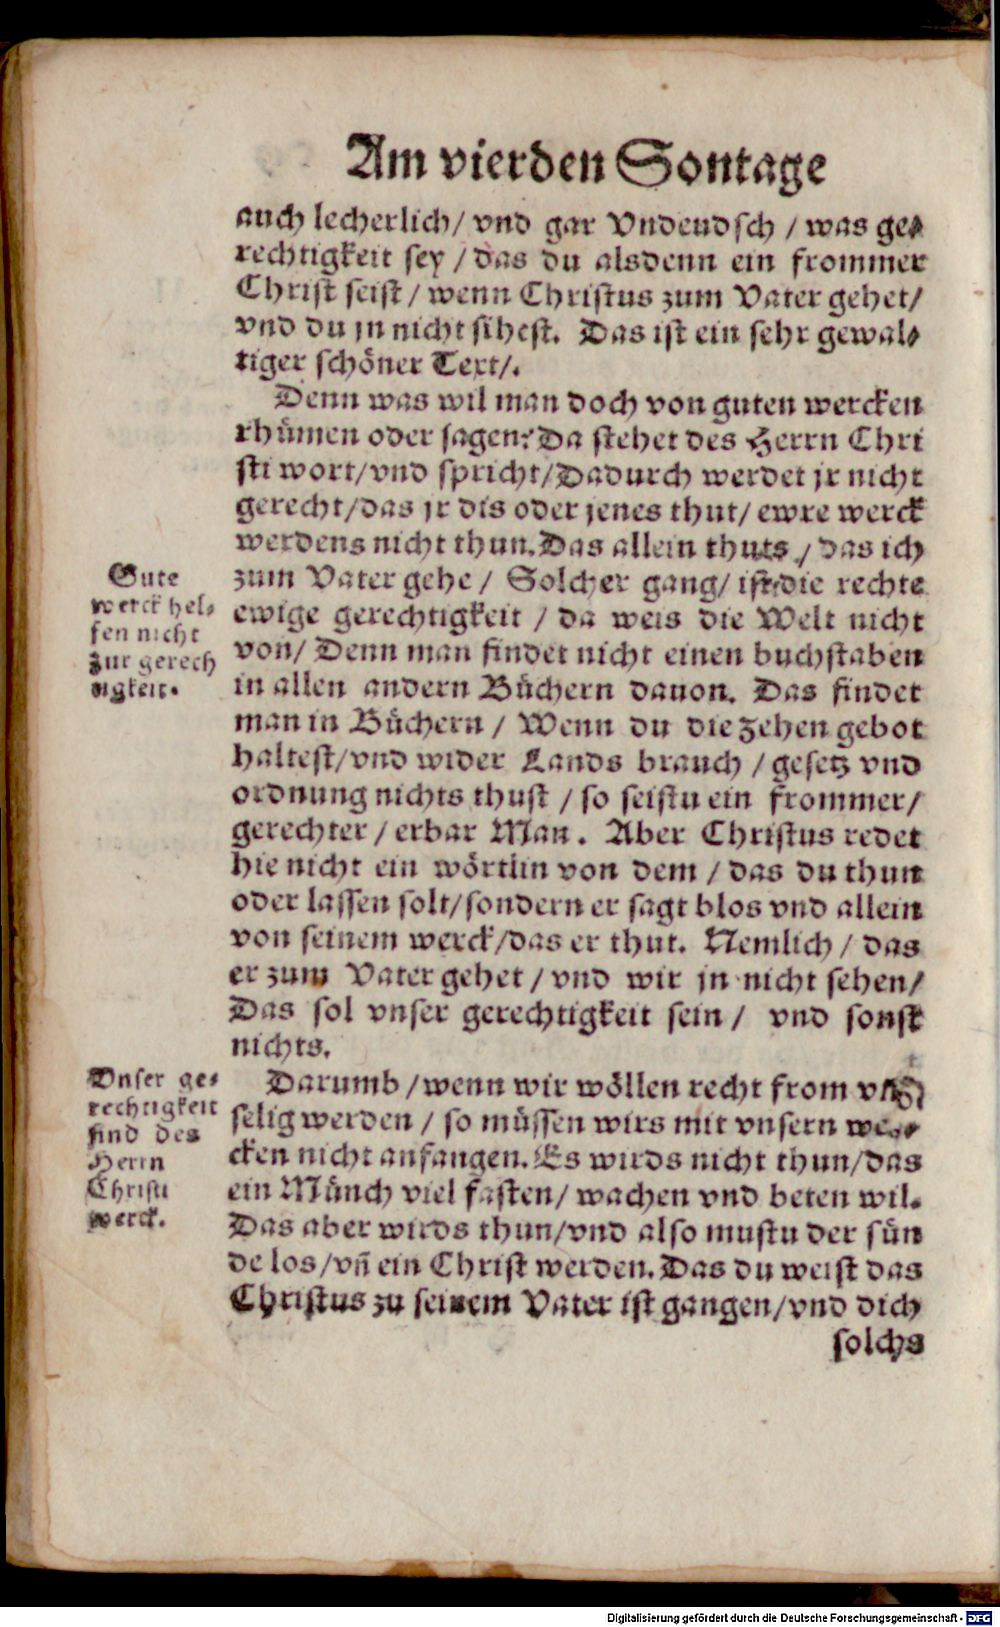 Am vierden Sontage
auch lecherlich/ vnd gar Vndeudsch / was ge-
rechtigkeit sey / das du alsdenn ein frommer
Christ seist / wenn Christus zum Vater gehet/
vnd du jn nicht sihest. Das ist ein sehr gewal-
tiger schöner Text/.
Denn was wil man doch von guten wercken
rhümen oder sagen? Da stehet des Herrn Chri
sti wort/vnd spricht/Dadurch werdet jr nicht
gerecht/das jr dis oder jenes thut/ ewre werck
werdens nicht thun. Das allein thuts / das ich
zum Vater gehe / Solcher gang/ ist die rechte
ewige gerechtigkeit / da weis die Welt nicht
von/ Denn man findet nicht einen buchstaben
in allen andern Büchern dauon. Das findet
man in Büchern / Wenn du die zehen gebot
haltest/vnd wider Lands brauch / gesetz vnd
ordnung nichts thust / so seistu ein frommer/
gerechter / erbar Man. Aber Christus redet
hie nicht ein wörtlin von dem / das du thun
oder lassen solt/sondern er sagt blos vnd allein
von seinem werck/das er thut. Nemlich / das
er zum Vater gehet / vnd wir jn nicht sehen/
Das sol vnser gerechtigkeit sein / vnd sonst
nichts.
Gute
werck hel-
fen nicht
zur gerech
tigkeit.
Darumb / wenn wir wöllen recht from
selig werden / so müssen wirs mit vnsern
cken nicht anfangen. Es wirds nicht thun/das
ein Münch viel fasten/ wachen vnd beten wil.
Das aber wirds thun/vnd also mustu der sün
de los/vñ ein Christ werden. Das du weist das
Christus zu seinem Vater ist gangen/vnd dich
solchs
Vnser ge-
rechtigkeit
sind des
Herrn
Christi
werck.
Digitalisierung gefördert durch die Deutsche Forschungsgemeinschaft - DFG